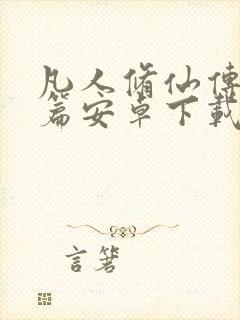 凡人脩仙傳
篇安卓下載
言箸